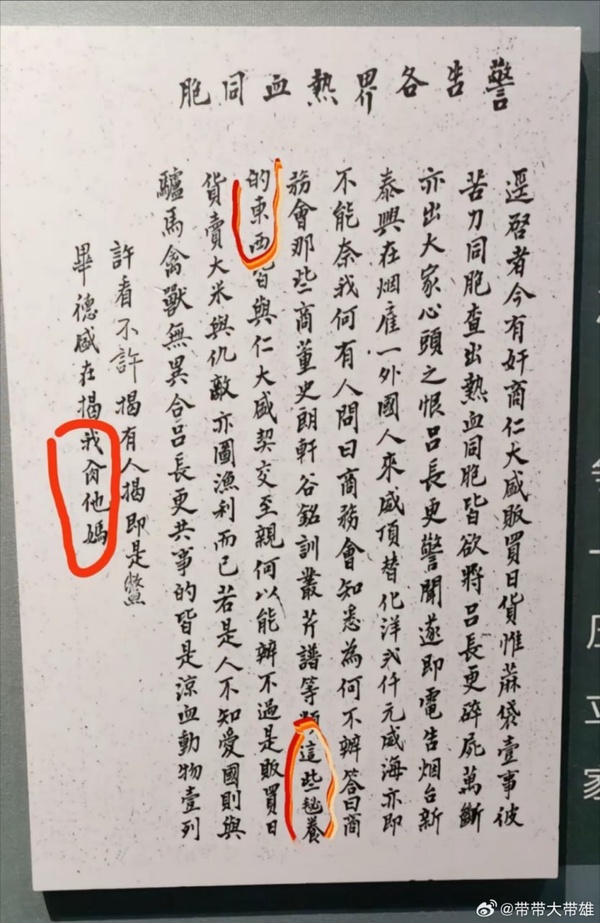 警告各界熱血同胞
逕啓者今有奸商仁大盛販買日貨惟蔴袋壹事彼
苦力同胞查出熱血同胞皆欲將呂長更碎屍萬斷
亦出大家心頭之恨呂長更警聞遂即電告烟台新
泰興在烟雇一外國人來威頂替化洋弍仟元威海亦即
不能奈我何有人問曰商務會知悉為何不辦答曰商
務會那些商董史朗軒谷銘訓叢芹譜等類這些毬養
的東西皆與仁大盛契交至親何以能辦不過是販買日
貨賣大米與仇敵亦圖漁利而已若是人不知愛國則與
驢馬禽獸無異合呂長更共事的皆是涼血動物壹列
許看不許揭有人揭即是鱉
畢德盛在揭我肏他媽
@带带大带雄